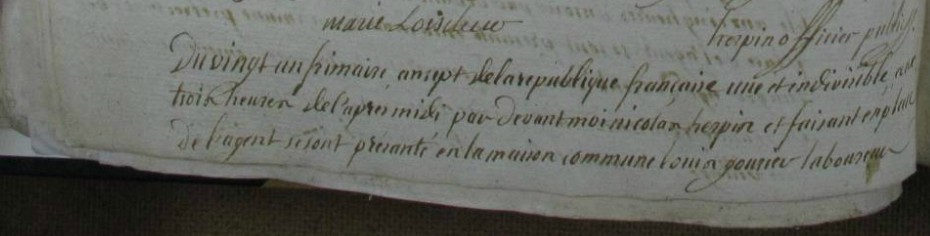 marie Loiseleur hespin officier public
Du vingt un frimaire an sept de la republique française une et indivisible, aux
trois heures de l'apres midi par devant moi nicolas hespin et faisant en place
de l'agent se sont présanté en la maison commune Louis gourier laboureur